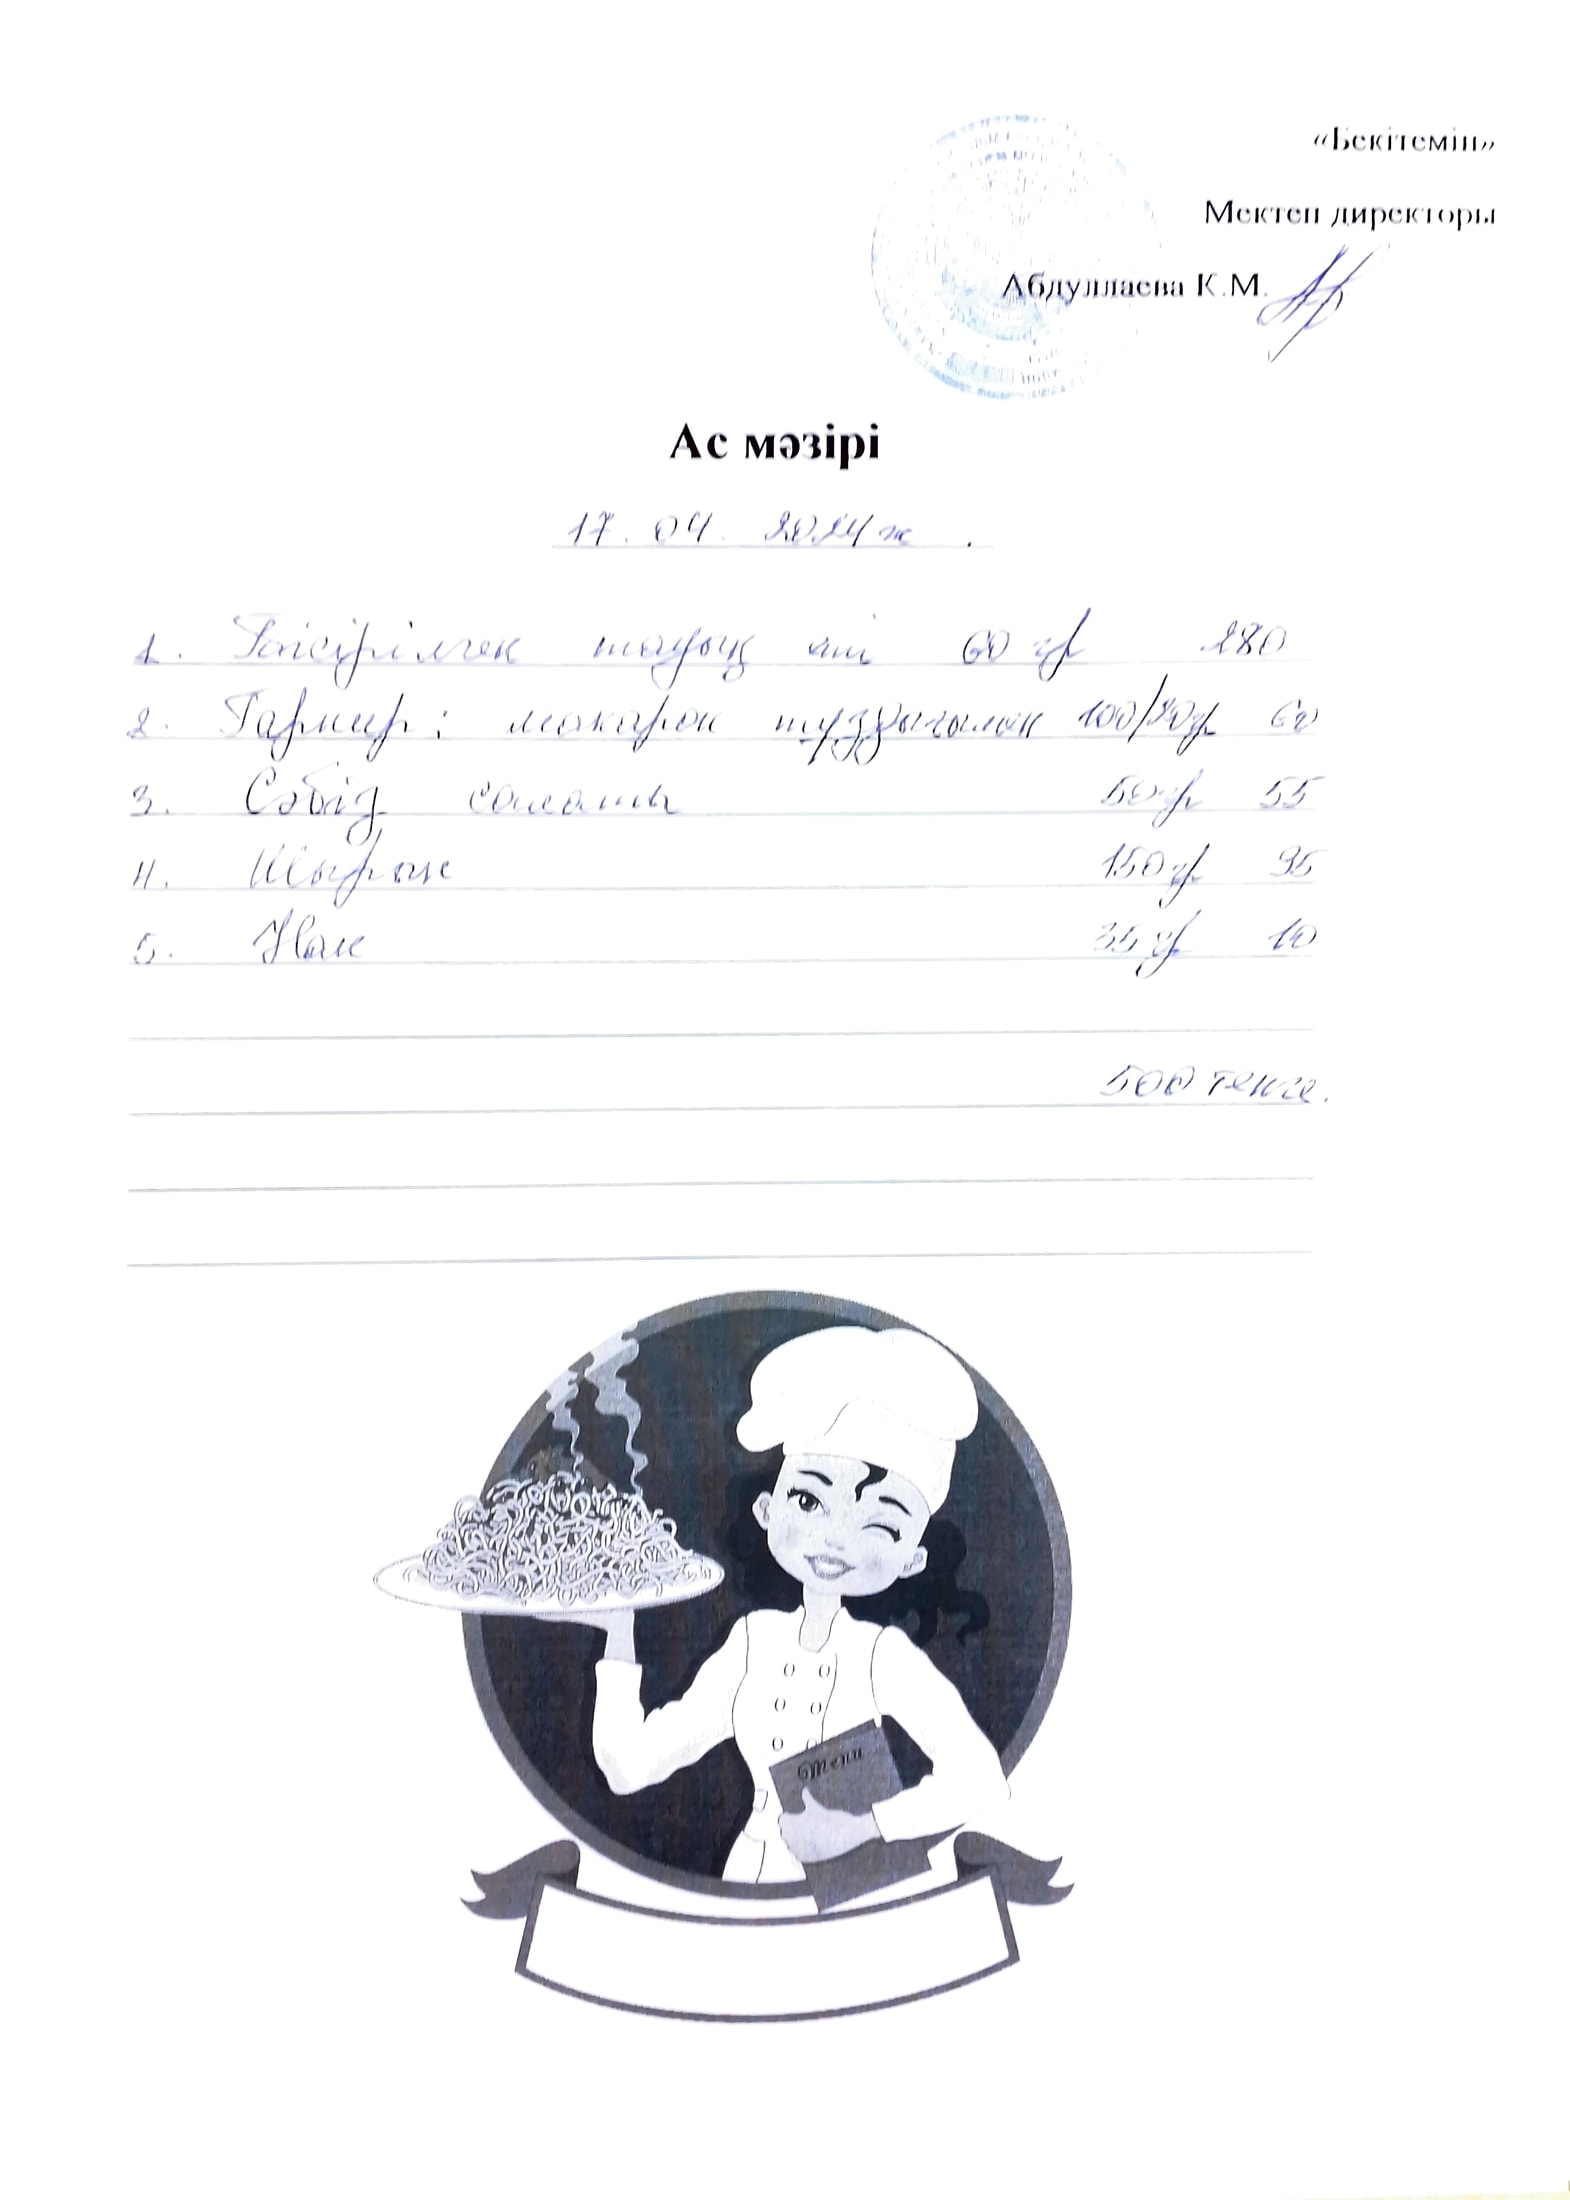 «Бекітемін»
Мектеп директоры
Абдуллаева К.М.
Ас мәзірі
17. 04. 2024 ж.
1. Пісірілген тауық еті 60 гр 280
2. Гарнир: макарон тұздығымен 100/50гр 60
3. Сәбіз салаты 50гр 55
4. Шырын 150гр 95
5. Нан 35гр 10
500 тенге.
Menu